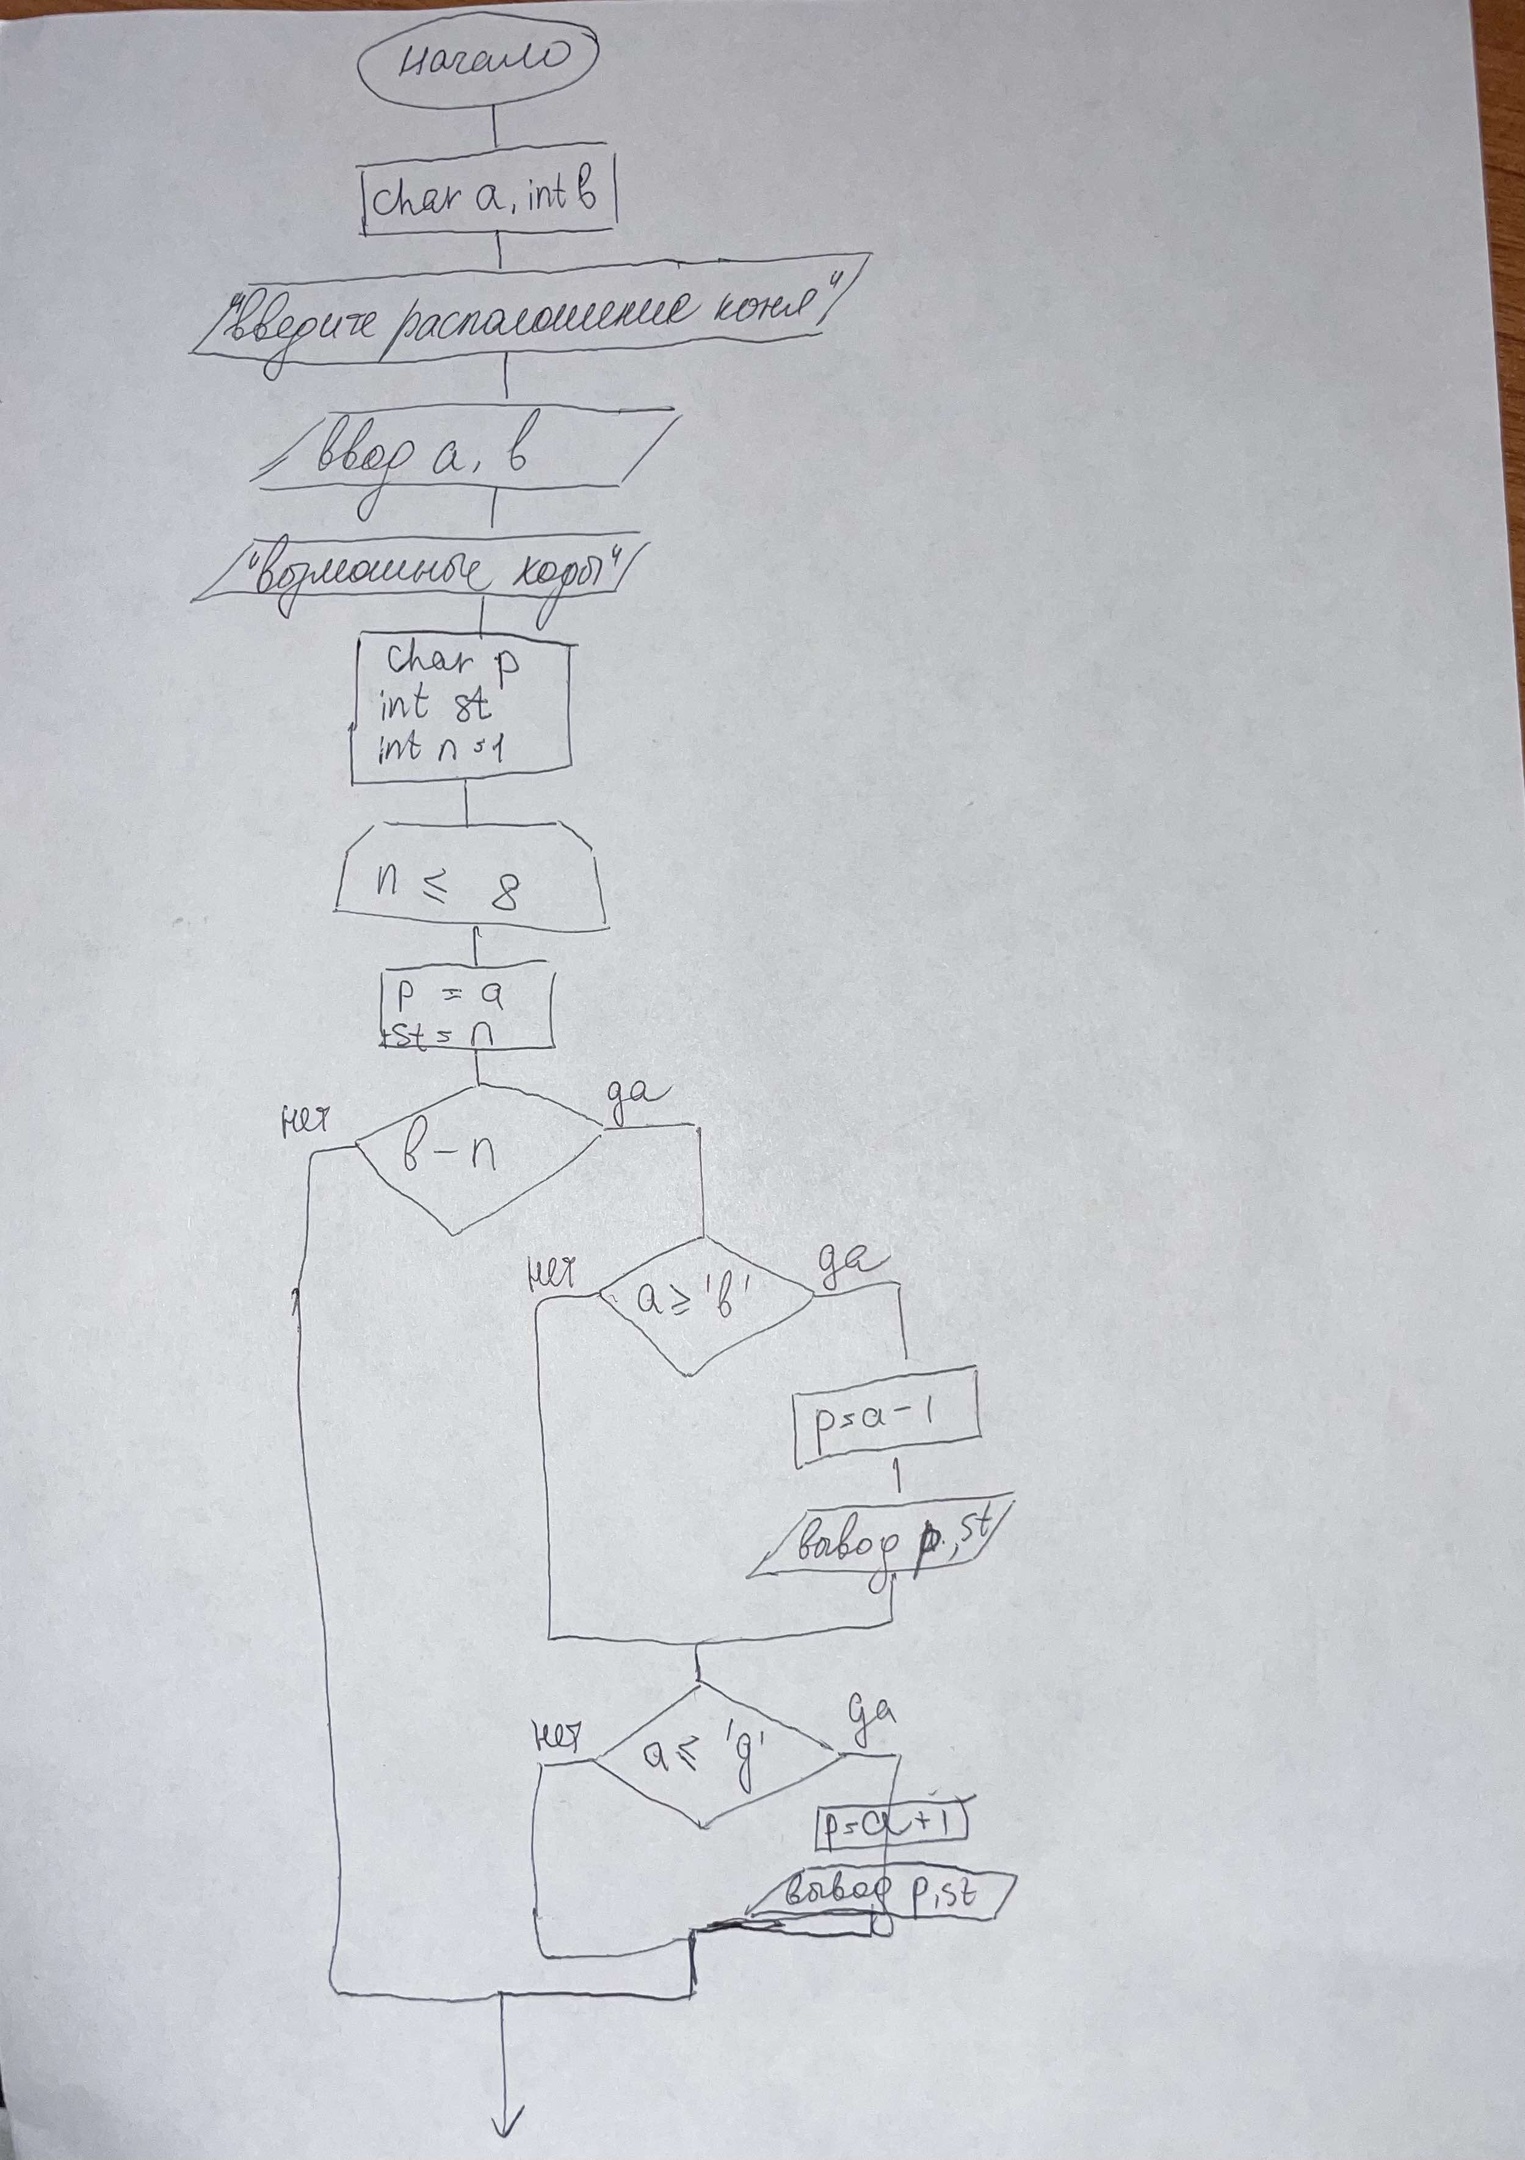 начало
char a, int b
"введите расположение коня"
ввод a, b
"возможные ходы"
char p
int st
int n = 1
n ≤ 8
p = a
st = n
нет
да
b – n
нет
да
a ≥ 'b'
p = a - 1
вывод p, st
нет
да
a ≤ 'g'
p = a + 1
вывод p, st